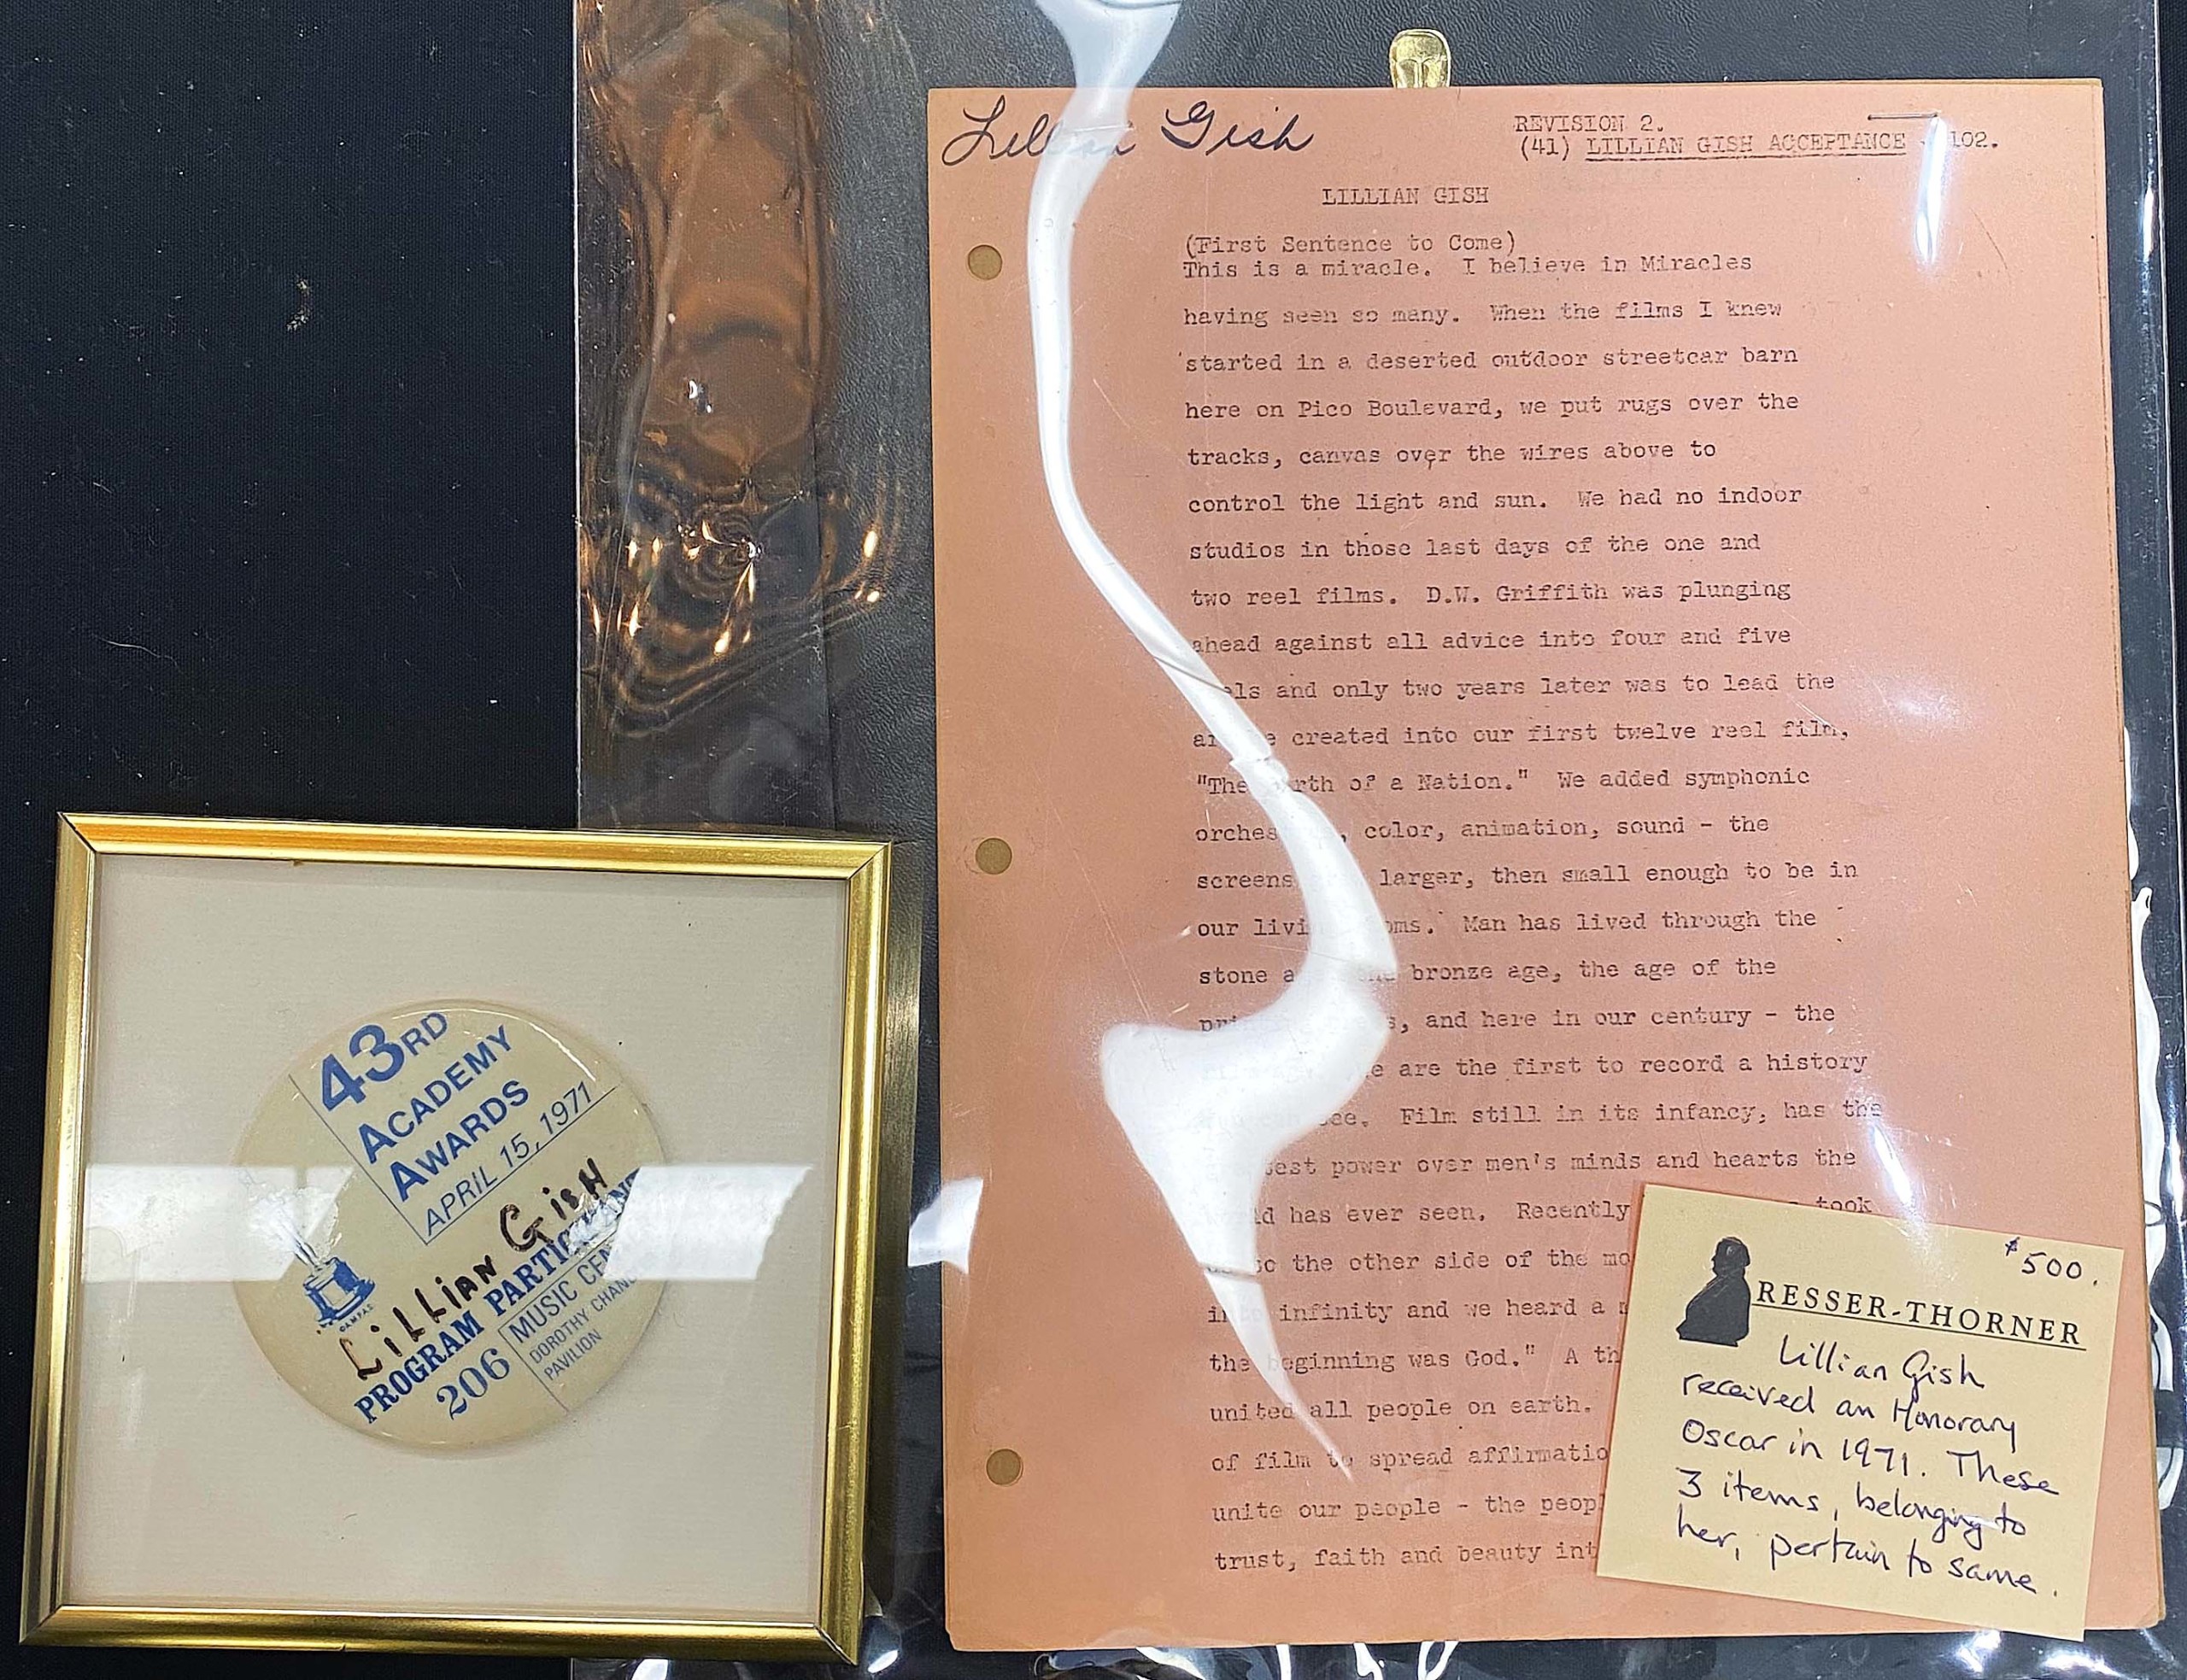 Lillian Gish
REVISION 2.
(41) LILLIAN GISH ACCEPTANCE - 102.
LILLIAN GISH
(First Sentence to Come)
This is a miracle. I believe in Miracles
having seen so many. When the films I knew
started in a deserted outdoor streetcar barn
here on Pico Boulevard, we put rugs over the
tracks, canvas over the wires above to
control the light and sun. We had no indoor
studios in those last days of the one and
two reel films. D.W. Griffith was plunging
ahead against all advice into four and five
and only two years later was to lead the
created into our first twelve reel film,
"The of a Nation." We added symphonic
color, animation, sound - the
screens larger, then small enough to be in
our Man has lived through the
stone bronze age, the age of the
and here in our century - the
are the first to record a history
Film still in its infancy, has the
power over men's minds and hearts the
has ever seen. Recently took
the other side of the
infinity and we heard a
the beginning was God." A
united all people on earth.
of film to spread
unite our people - the
trust, faith and beauty
43RD
ACADEMY
AWARDS
APRIL 15, 1971
LiLLiAN GiSH
PROGRAM
206
MUSIC
DOROTHY
PAVILION
$500.
RESSER-THORNER
Lillian Gish
received an Honorary
Oscar in 1971. These
3 items, belonging to
her, pertain to same.